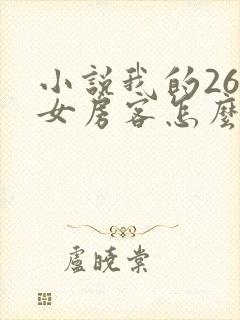 小說我的26
女房客怎麼
盧曉棠